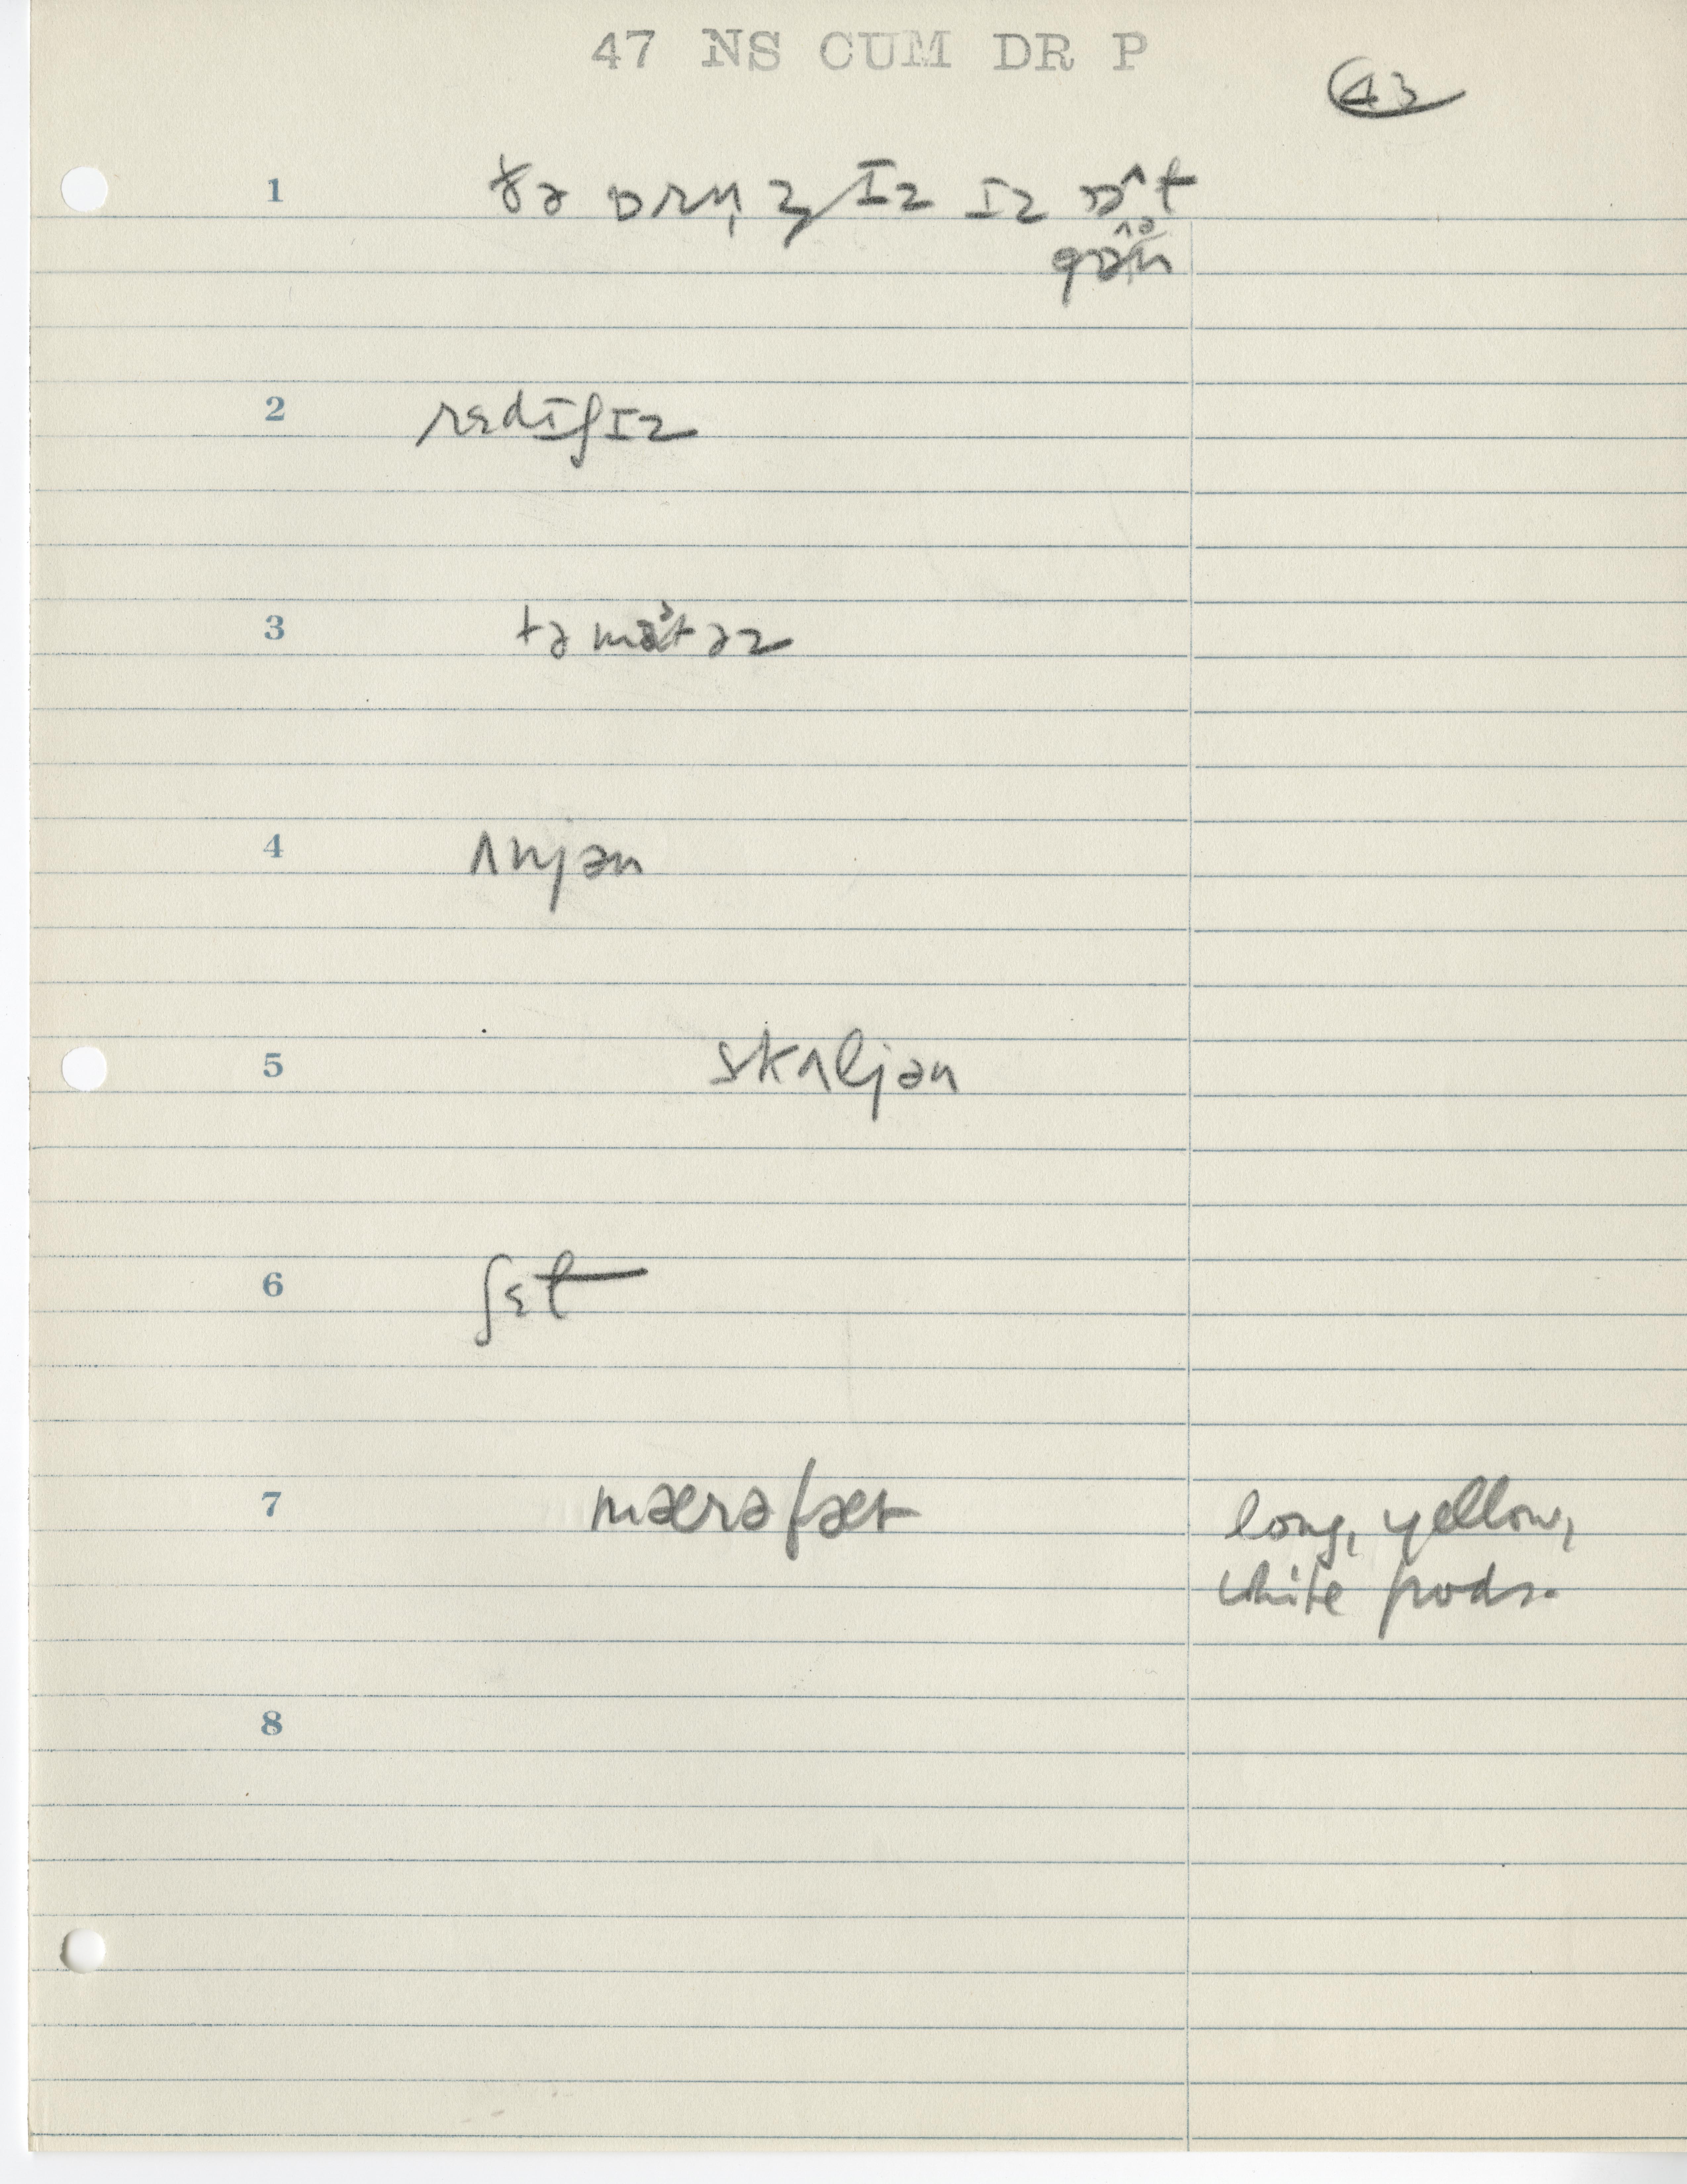 47 NS CUM DR P
43
1 ðə ɒrn̩ʒɪz ɪz ɒ^t
gɒ^n
2 rɛdɪʃɪz
3 təmatəz
4 ʌnjən
5 skʌljən
6 ʃɛl
7 mærəfæt long, yellow,
white pods.
8